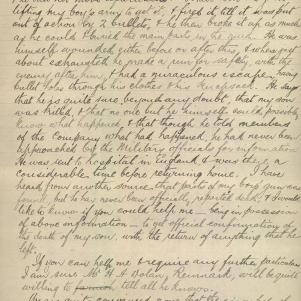 lifting my boy's arm to get it, & fired it till it was put
out of action by 2 bullets, & he then broke it up as much
as he could & buried the main parts in the mud. He was
himself wounded either before or after this, & when just
about exhausted he made a run for safety, with the
enemy after him, & had a miraculous escape, many
bullet holes through his clothes & his knapsack. He says
that he is quite sure, beyond any doubt, that my son
was killed, & that no one but he himself could possibly
know what happened, & that though he told members
of the Company what had happened, he had never been
approached by the Military officials for information
He was sent to hospital in England & was there a
considerable time before returning home. I have
heard from another source that parts of my boy's gun were
found, but to have never been officially reported dead. I would
like to know if you could help me — being in possession
of above information — to get official confirmation of
the death of my son, with the return of anything that he
left.
If you can help me & require any further particulars
I am sure Mr. H. A. Dolan, Renmark, will be quite
willing to tell all he knows.